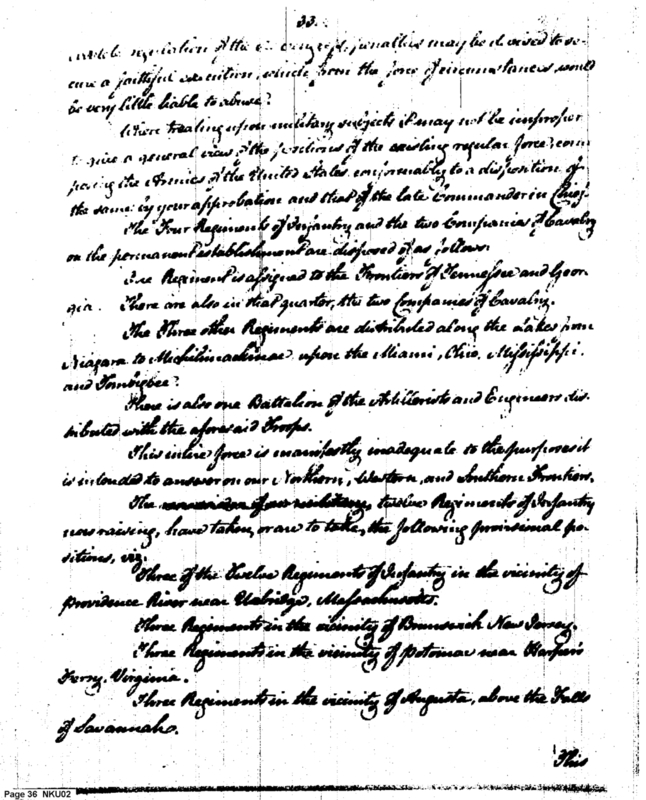 33.
regulation of the penalties may be devised to se-
cure a faithful execution, which from the force of circumstances, would
be very little liable to abuse.
When treating upon military subjects it may not be improper
to give a general view of the positions of the existing regular force, com
posing the Armies of the United States, conformably to a disposition of
the same by your approbation and that of the late Commander in Chief.
The Four Regiments of Infantry and the two Companies of Cavalry
on the permanent establishment are disposed of as follows.
One Regiment is assigned to the Frontiers of Tennessee and Geor-
gia. There are also in that quarter, the two Companies of Cavalry.
The Three other Regiments are distributed along the Lakes from
Niagara to Michilimackinac upon the Miami, Ohio, Mississippi,
and Tombigbee.
There is also one Battalion of the Artillerists and Engineers dis-
tributed with the aforesaid Troops.
This intire force is manifestly inadequate to the purposes it
is intended to answer on our Northern, Western, and Southern Frontiers.
The twelve Regiments of Infantry
now raising, have taken, or are to take, the following provisional po-
sitions, viz.
Three of the Twelve Regiments of Infantry in the vicinity of
providence River near Uxbridge, Massachusetts.
Three Regiments in the vicinity of Brunswick New Jersey.
Three Regiments in the vicinity of Potomac near Harper's
Ferry, Virginia.
Three Regiments in the vicinity of Augusta, above the Falls
of Savannah.
This
Page 36 NKU02